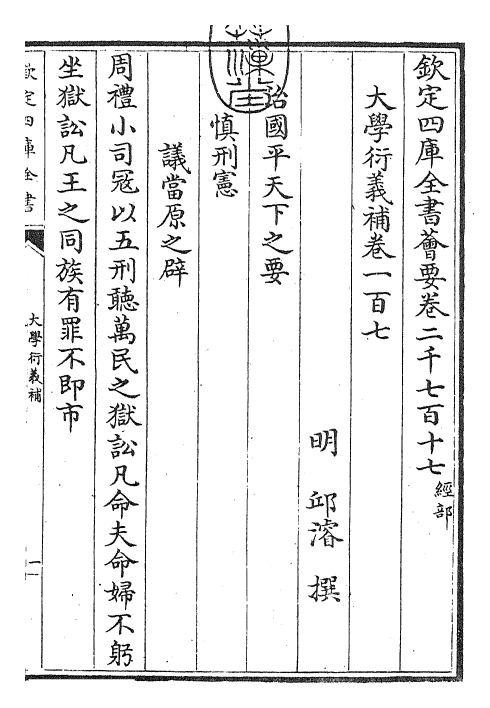 欽定四庫全書薈要卷二千七百十七 經部
大學衍義補卷一百七
明 邱濬 撰
治國平天下之要
慎刑憲
議當原之辟
周禮小司冦以五刑聽萬民之獄訟凡命夫命婦不躬
坐獄訟凡王之同族有罪不即市
欽定四庫全書
大學衍義補
一